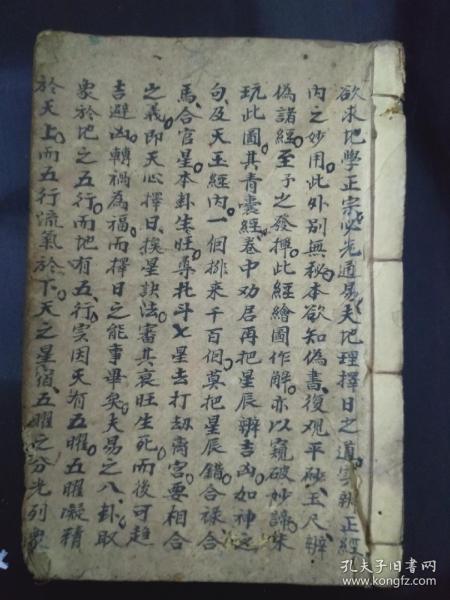 欲求地學正宗必先通易夫地理擇日之道實辨正經
內之妙用此外別無秘本欲知偽書復观平砂玉尺辨
偽諸經至予之發揮此經繪圖作解亦以窺破妙諦朱
玩此圖其青囊經卷中劝君再把星辰辨吉凶如神之
句及天玉經內一個排來千百個莫把星辰錯合祿合
馬合官星本卦生旺尋北斗七星去打劫离宮要相合
之義即天心擇日挨星訣法審其衰旺生死而後可趋
吉避凶轉禍為福而擇日之能事畢矣夫易之八卦取
象於地之五行而地有五行实因天有五曜五曜凝精
於天上而五行流氣於下天之星宿五曜之分光列象
孔夫子旧书网
kongfz.com